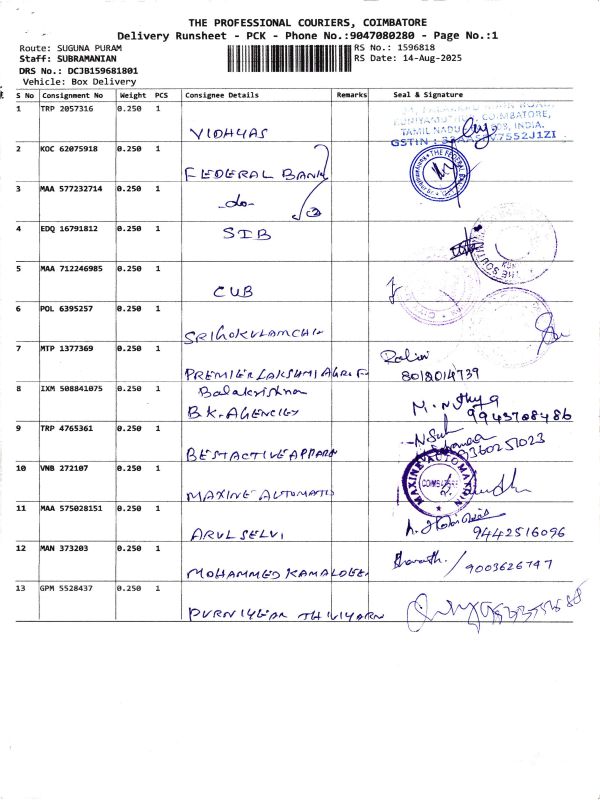 THE PROFESSIONAL COURIERS, COIMBATORE
Delivery Runsheet - PCK - Phone No.:9047080280 - Page No.:1
Route: SUGUNA PURAM RS No.: 1596818
Staff: SUBRAMANIAN RS Date: 14-Aug-2025
DRS No.: DCJB159681801
Vehicle: Box Delivery
S No Consignment No Weight PCS Consignee Details Remarks Seal & Signature
1 TRP 2057316 0.250 1 VIDHYAS
COIMBATORE,
TAMIL NADU INDIA.
GSTIN :
2 KOC 62075918 0.250 1 FEDERAL BANK
THE FEDERAL
3 MAA 577232714 0.250 1 -do-
4 EDQ 16791812 0.250 1 SIB
THE SOUTH
5 MAA 712246985 0.250 1 CUB
6 POL 6395257 0.250 1 SRIGOKULAMCHI
7 MTP 1377369 0.250 1 PREMIER LAKSHMI AGRO F
8018014739
8 IXM 508841075 0.250 1 Balakrishnan
B.K. AGENCIES
9943708486
9 TRP 4765361 0.250 1 BESTACTIVE APPARN
9360251023
10 VNB 272107 0.250 1 MAXINE AUTOMATIO
MAXINE AUTOMATION
COIMBATORE
11 MAA 575028151 0.250 1 ARUL SELVI
9442516096
12 MAN 373203 0.250 1 MOHAMMED KAMALDEE
Bharath. / 9003626747
13 GPM 5528437 0.250 1